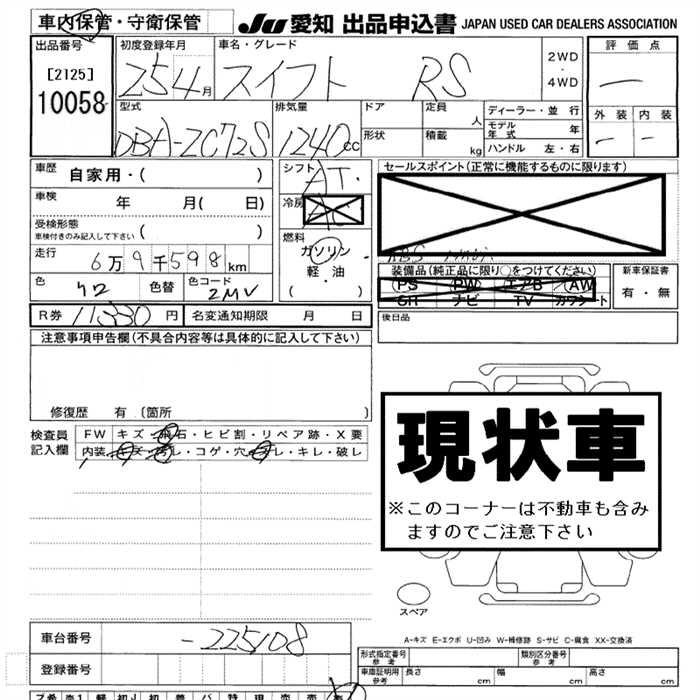 車内保管・守衛保管
JU 愛知 出品申込書 JAPAN USED CAR DEALERS ASSOCIATION
出品番号 初度登録年月 車名・グレード 2WD ・ 4WD 評価点
[2125] 25 4月 スイフト RS
10058 型式 排気量 ドア 定員 人 ディーラー・並行 外装 内装
DBA-ZC72S 1240cc 形状 積載 kg モデル年式 年
ハンドル 左・右
車歴 自家用・( ) シフト AT
セールスポイント(正常に機能するものに限ります)
車検 年 月( 日) 冷房
受検形態 車検付きのみ記入して下さい ( )
燃料 ガソリン
軽・油
・( )
走行 6万9千598km
装備品(純正品に限り○をつけてください) 新車保証書
PS PW エアB AW 有・無
SR ナビ TV カワシート
色 クロ 色替 色コード ZMV
R券 11330円 名変通知期限 月 日 後日品
注意事項申告欄(不具合内容等は具体的に記入して下さい)
修復歴 有(箇所 )
検査員記入欄 FW キズ・飛石・ヒビ割・リペア跡・X要
内装 キズ・汚レ・コゲ・穴・スレ・キレ・破レ
現状車
※このコーナーは不動車も含み
ますのでご注意下さい
スペア
A-キズ E-エクボ U-凹み W-補修跡 S-サビ C-腐食 XX-交換済
車台番号 -225108
登録番号
形式指定番号 参考 類別区分番号 参考
車庫証明用 参考 長さ cm 幅 cm 高さ cm